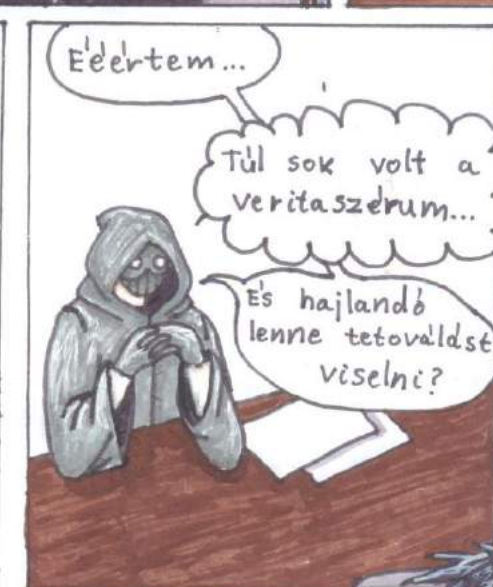 Éééértem...
Túl sok volt a
veritaszérum...
És hajlandó
lenne tetoválást
viselni?